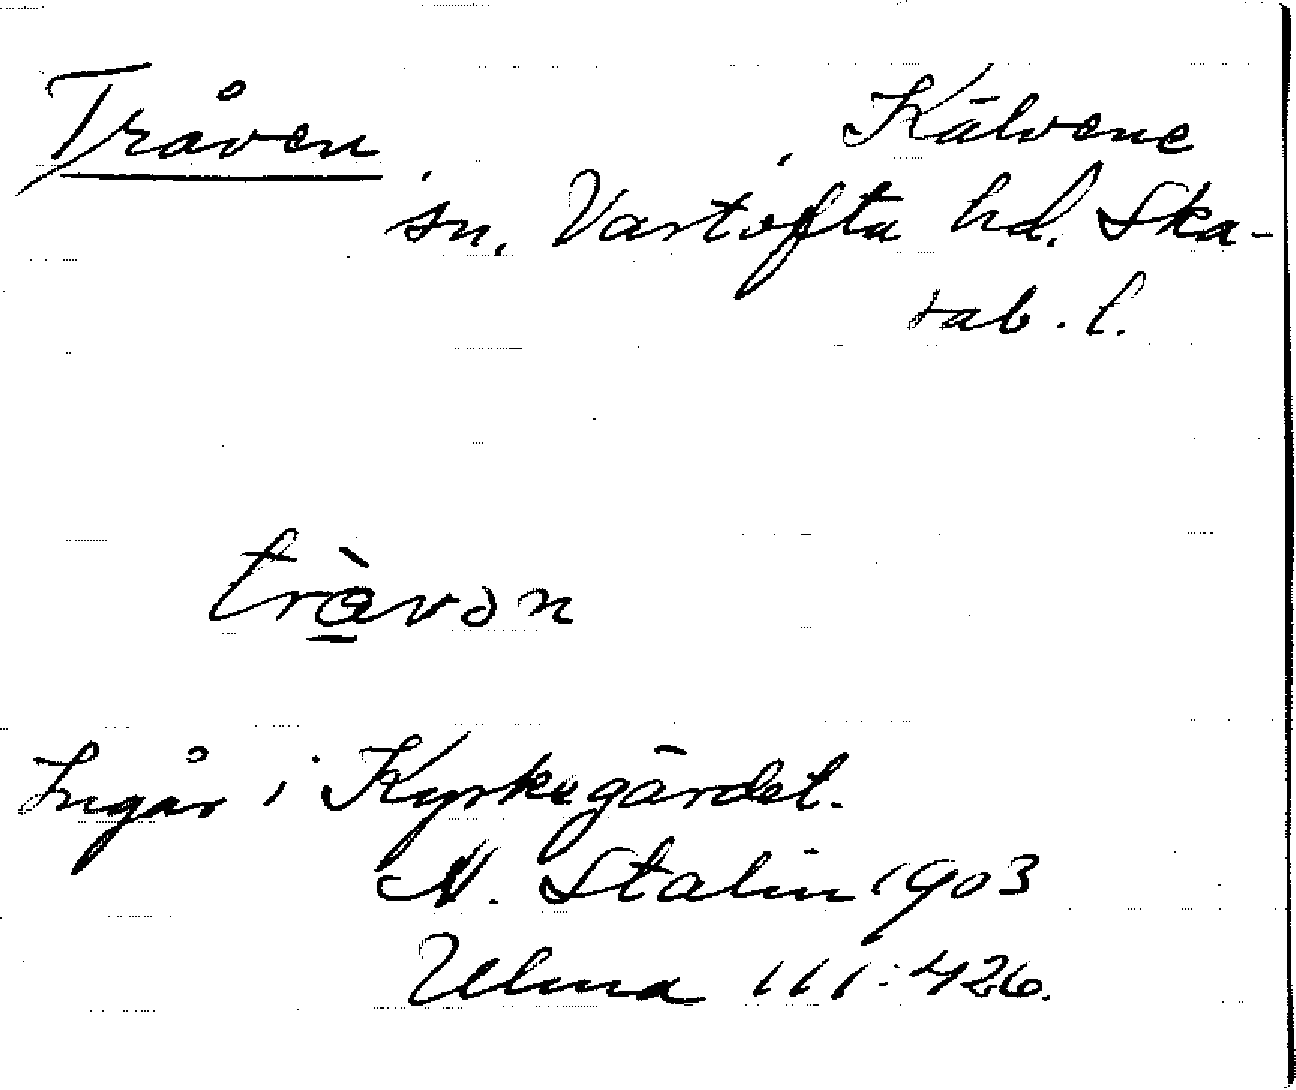 Tråven Kälvene
sn. Vartofta hd. Ska-
rab. l.
tràvən
Ingår i Kyrkegärdet.
N. Stalin 1903
Ulma 111:426.